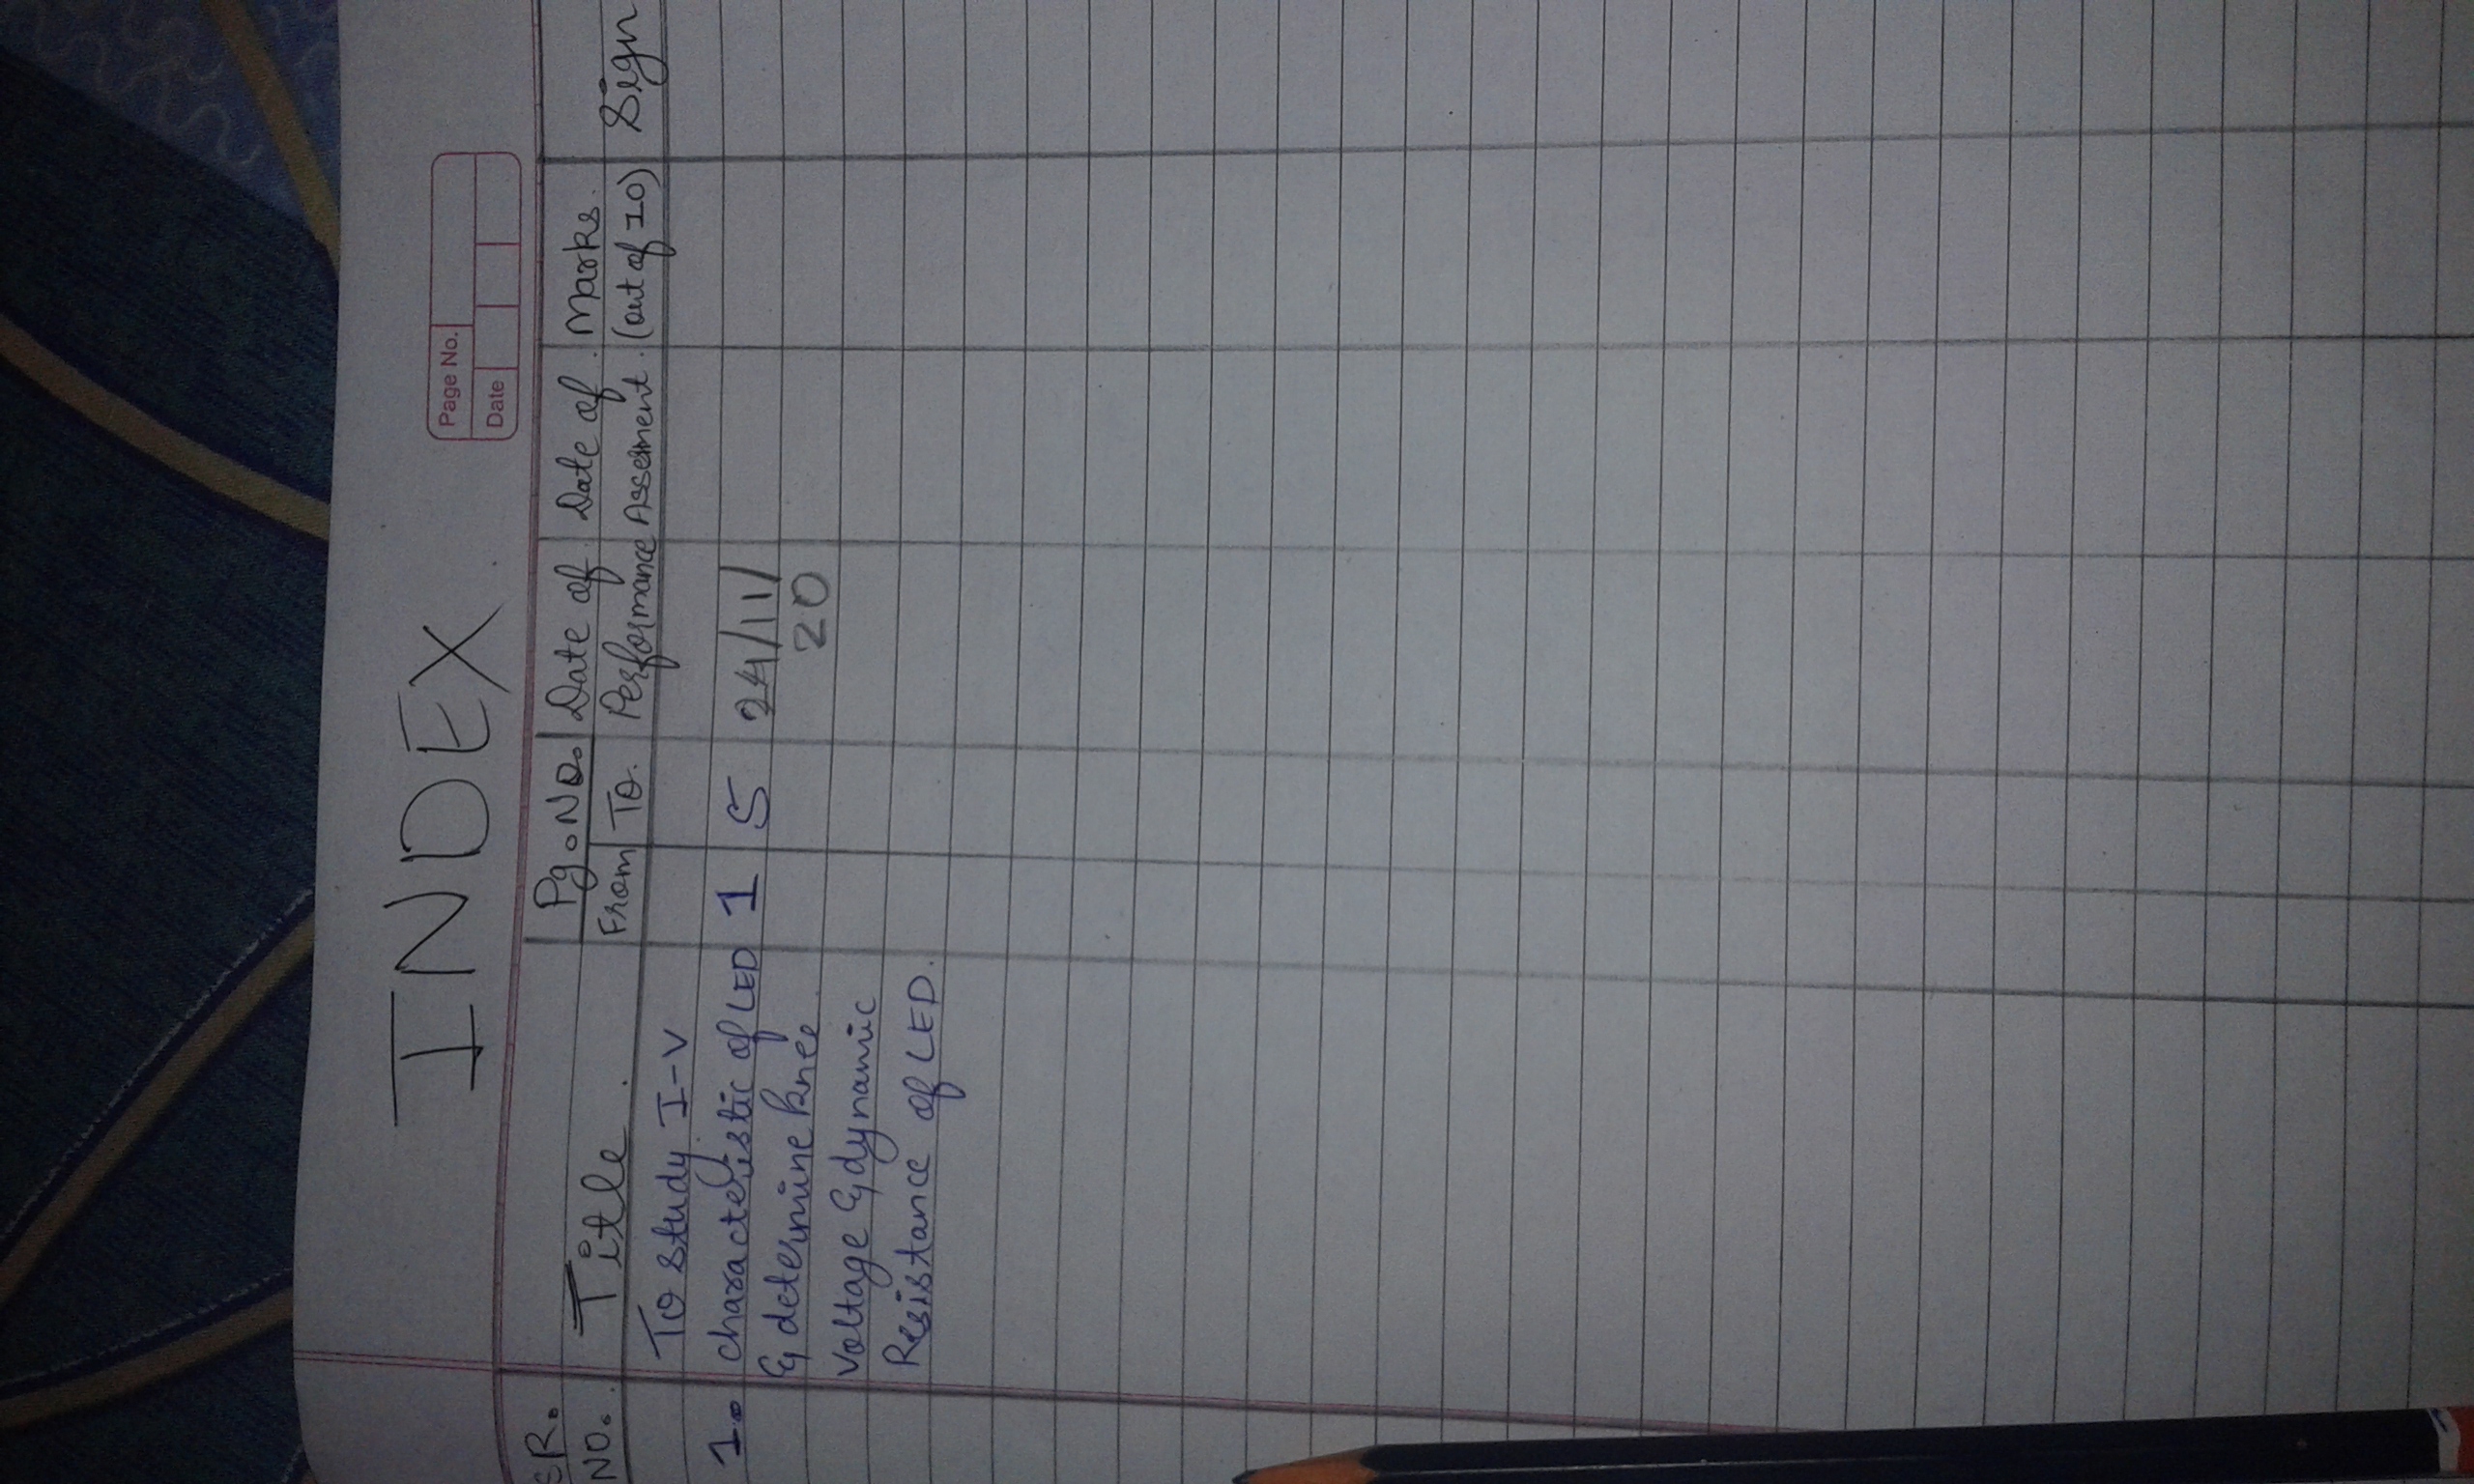 INDEX.
Page No.
Date
SR. NO.
Title.
Pg. No.
From
To.
Date of Performance
Date of Assesment.
Marks. (out of 10)
Sign
1.
To study I-V
characteristic of LED
& determine knee
voltage & dynamic
Resistance of LED.
1
5
24/11/
20